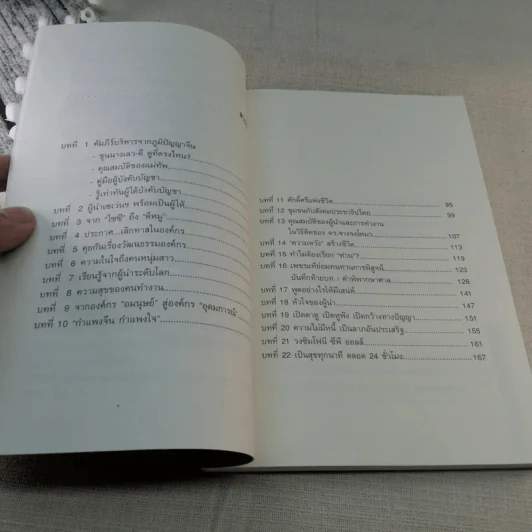 บทที่ 1 คัมภีร์บริหารจากภูมิปัญญาจีน
- ขุนนางเลว-ดี ดูที่ตรงไหน?
- คุณสมบัติของแม่ทัพ
- คู่มือผู้บังคับบัญชา
- รู้เท่าทันผู้ใต้บังคับบัญชา
บทที่ 2 ผู้นำเซเว่นฯ พร้อมเป็นผู้ให้
บทที่ 3 จาก "ไซซี" ถึง "ตีหมู"
บทที่ 4 ประกาศ..เลิกทาสในองค์กร
บทที่ 5 คุยกันเรื่องวัฒนธรรมองค์กร
บทที่ 6 ความในใจถึงคนหนุ่มสาว
บทที่ 7 เรียนรู้จากผู้นำระดับโลก
บทที่ 8 ความสุขของคนทำงาน
บทที่ 9 จากองค์กร "อมนุษย์" สู่องค์กร "อุดมการณ์"
บทที่ 10 "กำแพงจีน กำแพงใจ"
บทที่ 11 ศักดิ์ศรีแห่งชีวิต 95
บทที่ 12 ชุมชนกับสังคมประชาธิปไตย 99
บทที่ 13 คุณสมบัติของผู้นำและการทำงาน
ในวิธีคิดของ ดร.จางจงโหมว 107
บทที่ 14 "ความหวัง" สร้างชีวิต 113
บทที่ 15 ทำไมต้องเรียก "ท่าน"? 119
บทที่ 16 เพชรแท้ย่อมทนทานการพิสูจน์ 123
บันทึกท้ายบท / คำพิพากษาศาล 128
บทที่ 17 พูดอย่างไรให้มีเสน่ห์ 141
บทที่ 18 หัวใจของผู้นำ 147
บทที่ 19 เปิดตาดู เปิดหูฟัง เปิดกว้างทางปัญญา 151
บทที่ 20 ความไม่มีหนี้ เป็นลาภอันประเสริฐ 155
บทที่ 21 วงซิมโฟนี ซีพี ออลล์ 161
บทที่ 22 เป็นสุขทุกนาที ตลอด 24 ชั่วโมง 167